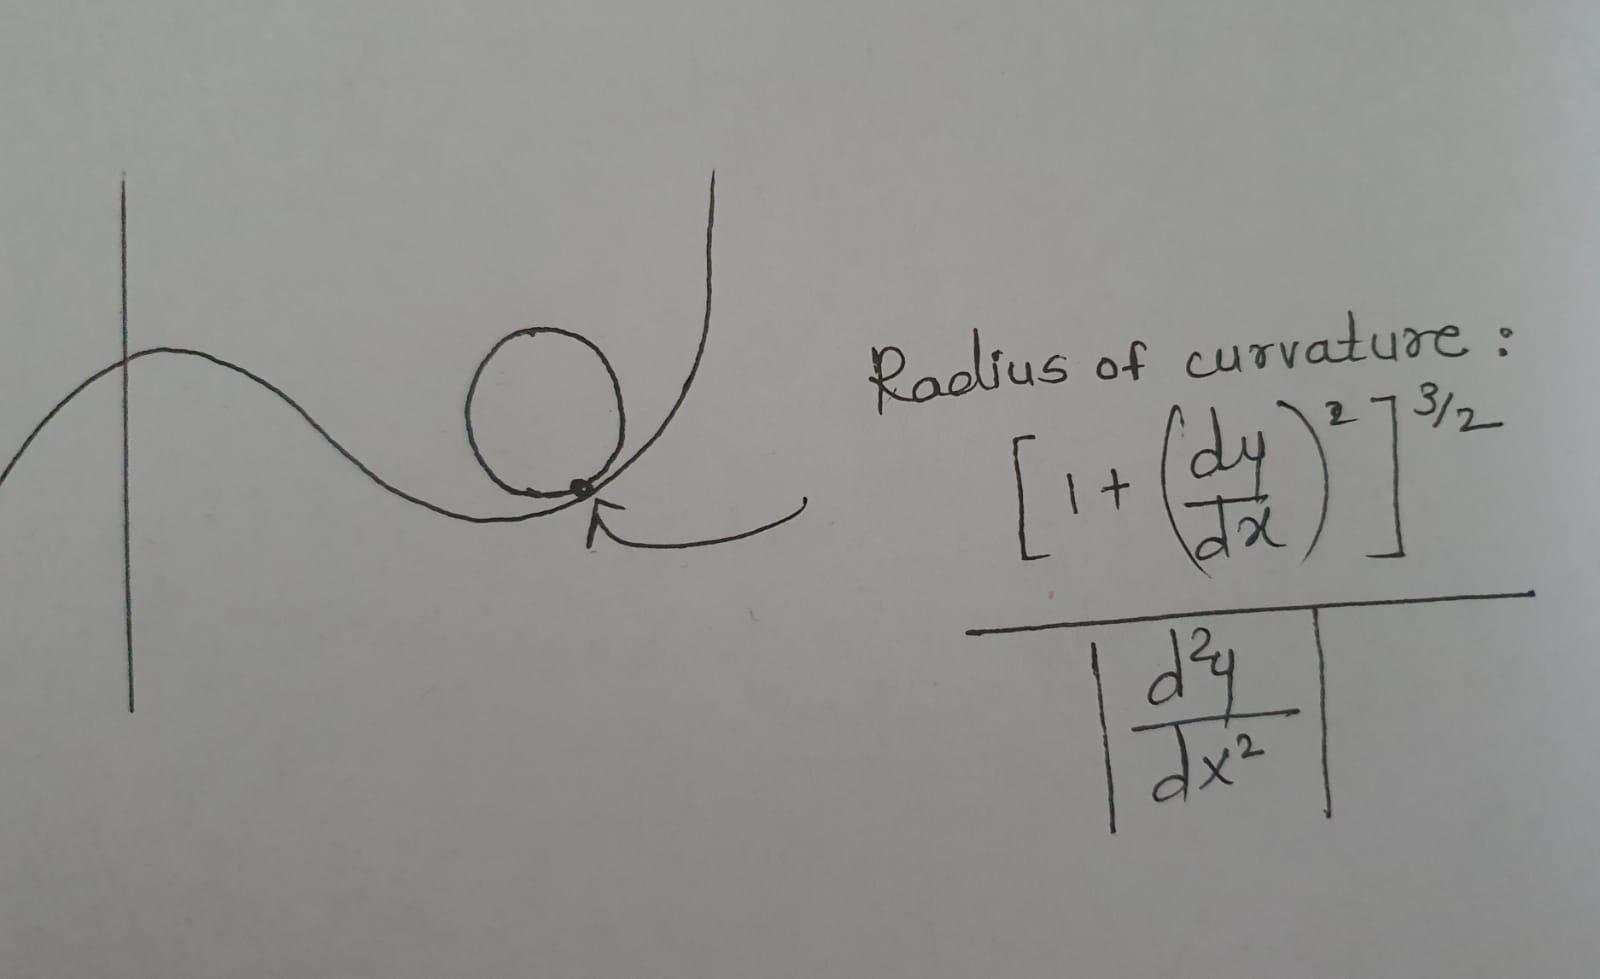 Radius of curvature :
[1 + (dy/dx)²]^3/2
|d²y/dx²|